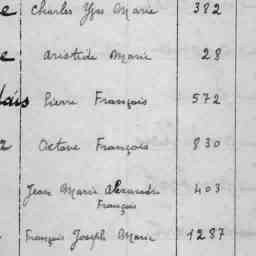 e Charles Yves Marie 382
e Aristide Marie 28
lais Pierre François 572
Octave François 830
Jean Marie Alexandre 403
François
François Joseph Marie 1287